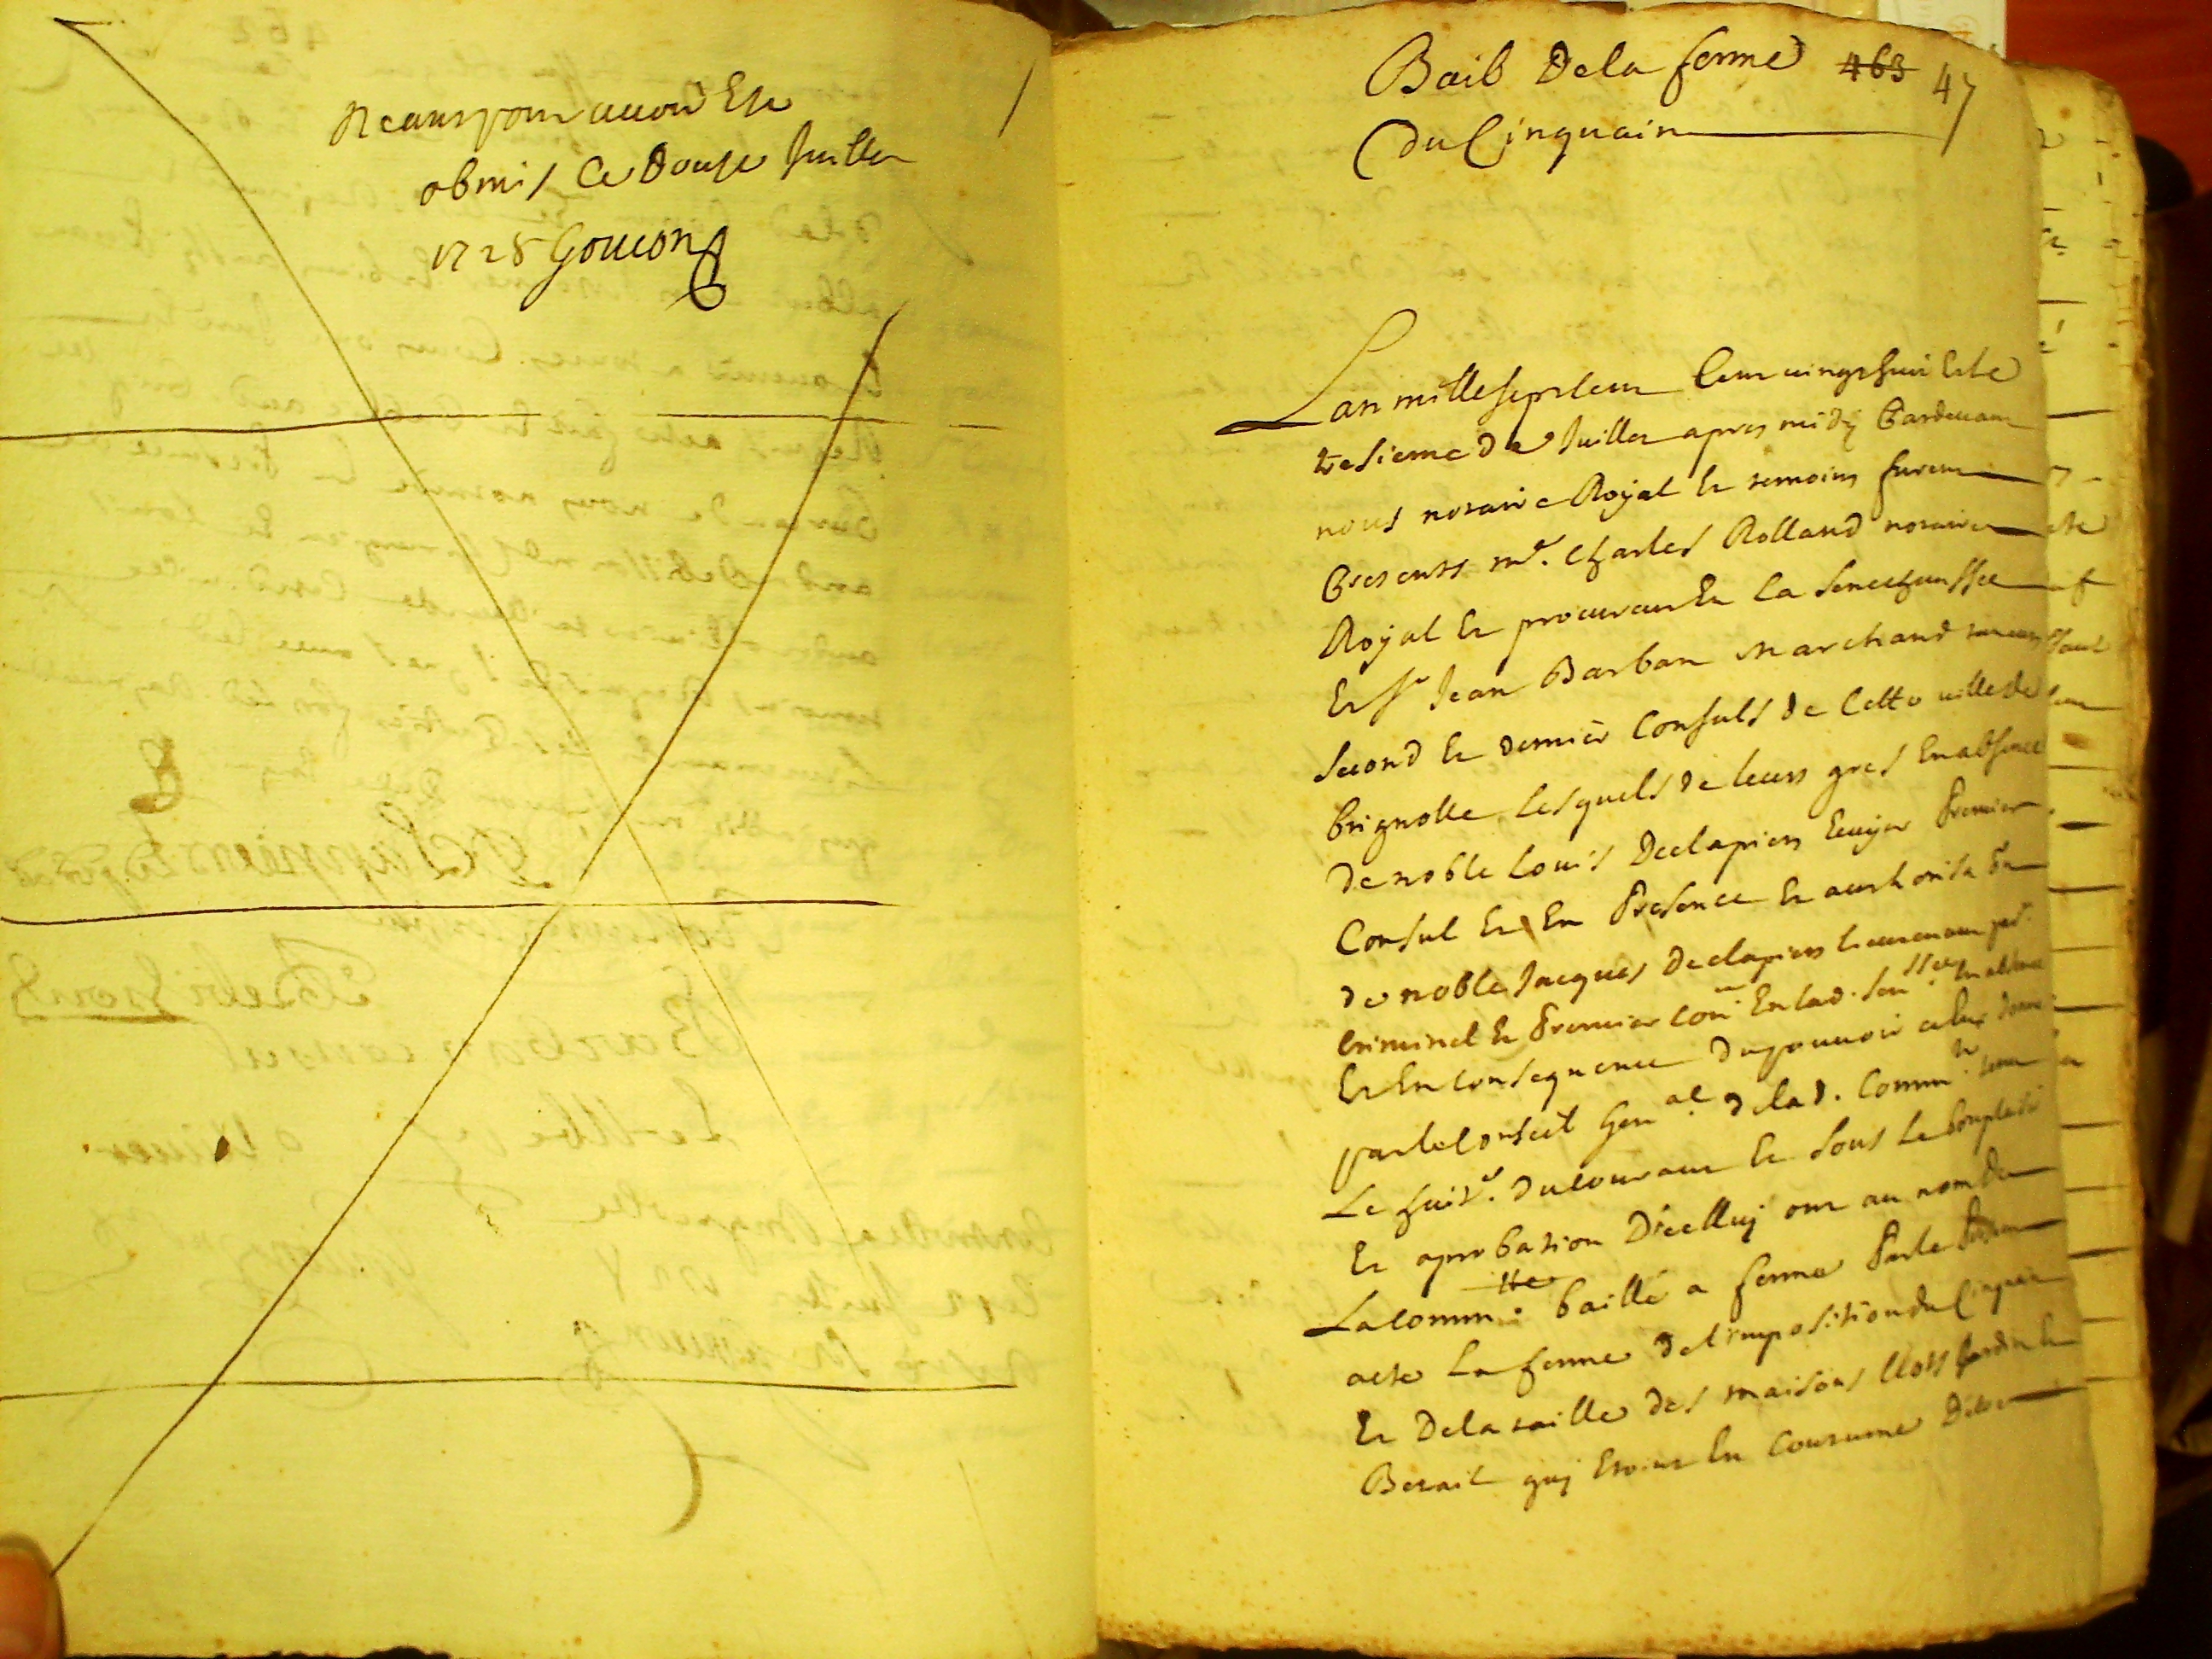 Neant pour avoir Esté
obmis Ce Douse Juillet
1728 Goujon
Bail De la ferme 463 47
Du Cinquain
Lan mille sept cens vingt huit Et le
tresieme de Juillet apres midÿ Pardevant
nous notaire Royal Et temoins furent
Presents me. Charles Rolland notaire
Royal Et procureur En la senechaussée
Et sr Jean Barban marchand
second Et dernier Consuls de Cette ville de
brignolle Lesquels de leurs gres En absence
De noble Louis Declapiers Ecuÿer Premier
Consul Et En Presence Et aucthorisaõn
de noble Jacques Declapiers Lieutenant
Criminel Et Premier Con.er En lad. Sen.ssée En absence
Et En consequence Du pouvoir a Eux donné
par le Conseil Gen.al de lad. Comm.té tenu
Le huit.e Du Courant Et sous Le bon plaisir
Et aprobation D'icelluÿ ont au nom de
La Comm.té baillé a ferme Par le Present
acte La ferme de l'imposition du Cinquain
Et De la taille des maisons Clots Jardin Et
Berail quÿ Etoient En Coutume De